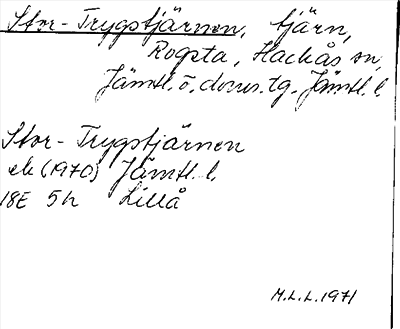 Stor-Trygstjärnen, tjärn,
Rogsta, Hackås sn,
Jämtl. ö. doms. tg. Jämtl. l.
Stor-Trygstjärnen
ek (1970) Jämtl. l.
18E 5h Lillå
M.L.L. 1971